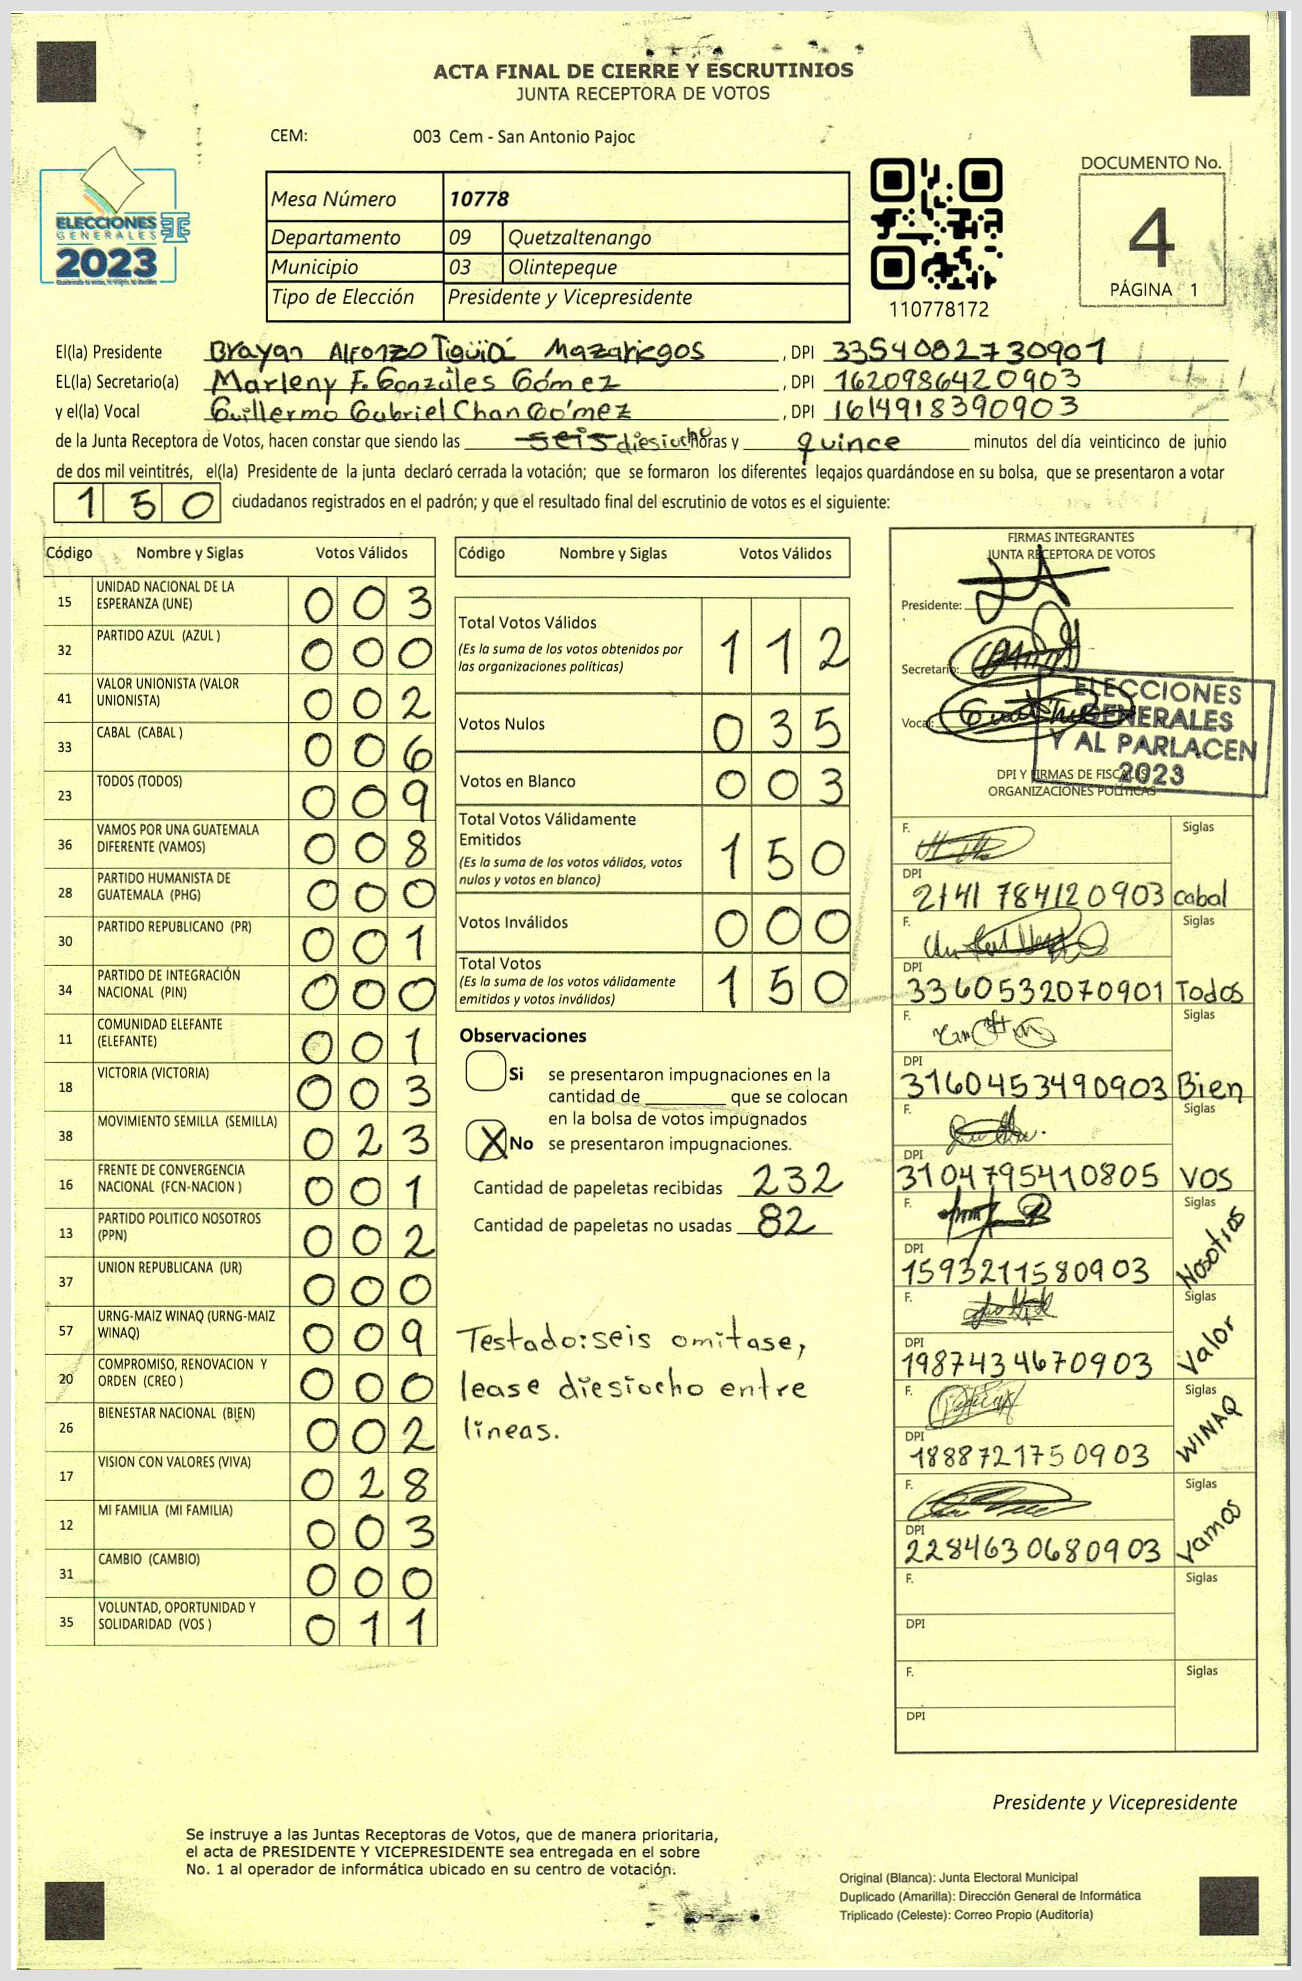 ACTA FINAL DE CIERRE Y ESCRUTINIOS
JUNTA RECEPTORA DE VOTOS
CEM: 003 Cem - San Antonio Pajoc
ELECCIONES
GENERALES
2023
Mesa Número 10778
Departamento 09 Quetzaltenango
Municipio 03 Olintepeque
Tipo de Elección Presidente y Vicepresidente
110778172
DOCUMENTO No.
4
PÁGINA 1
El(la) Presidente Brayan Alfonzo Tigüiá Mazariegos, DPI 3354082730901
EL(la) Secretario(a) Marleny F. Gonzáles Gómez, DPI 1620986420903
y el(la) Vocal Guillermo Gabriel Chan Gómez, DPI 1614918390903
de la Junta Receptora de Votos, hacen constar que siendo las seis diesiocho horas y quince minutos del día veinticinco de junio
de dos mil veintitrés, el(la) Presidente de la junta declaró cerrada la votación; que se formaron los diferentes legajos guardándose en su bolsa, que se presentaron a votar
150 ciudadanos registrados en el padrón; y que el resultado final del escrutinio de votos es el siguiente:
Código Nombre y Siglas Votos Válidos
15 UNIDAD NACIONAL DE LA ESPERANZA (UNE) 003
32 PARTIDO AZUL (AZUL ) 000
41 VALOR UNIONISTA (VALOR UNIONISTA) 002
33 CABAL (CABAL ) 006
23 TODOS (TODOS) 009
36 VAMOS POR UNA GUATEMALA DIFERENTE (VAMOS) 008
28 PARTIDO HUMANISTA DE GUATEMALA (PHG) 000
30 PARTIDO REPUBLICANO (PR) 001
34 PARTIDO DE INTEGRACIÓN NACIONAL (PIN) 000
11 COMUNIDAD ELEFANTE (ELEFANTE) 001
18 VICTORIA (VICTORIA) 003
38 MOVIMIENTO SEMILLA (SEMILLA) 023
16 FRENTE DE CONVERGENCIA NACIONAL (FCN-NACION ) 001
13 PARTIDO POLITICO NOSOTROS (PPN) 002
37 UNION REPUBLICANA (UR) 000
57 URNG-MAIZ WINAQ (URNG-MAIZ WINAQ) 009
20 COMPROMISO, RENOVACION Y ORDEN (CREO ) 000
26 BIENESTAR NACIONAL (BIEN) 002
17 VISION CON VALORES (VIVA) 028
12 MI FAMILIA (MI FAMILIA) 003
31 CAMBIO (CAMBIO) 000
35 VOLUNTAD, OPORTUNIDAD Y SOLIDARIDAD (VOS ) 011
Código Nombre y Siglas Votos Válidos
Total Votos Válidos 112
(Es la suma de los votos obtenidos por
las organizaciones políticas)
Votos Nulos 035
Votos en Blanco 003
Total Votos Válidamente
Emitidos 150
(Es la suma de los votos válidos, votos
nulos y votos en blanco)
Votos Inválidos 000
Total Votos 150
(Es la suma de los votos válidamente
emitidos y votos inválidos)
Observaciones
Si se presentaron impugnaciones en la
cantidad de ________ que se colocan
en la bolsa de votos impugnados
X No se presentaron impugnaciones.
Cantidad de papeletas recibidas 232
Cantidad de papeletas no usadas 82
Testado: seis omitase,
lease diesiocho entre
lineas.
FIRMAS INTEGRANTES
JUNTA RECEPTORA DE VOTOS
Presidente:
Secretario:
Vocal:
ELECCIONES
GENERALES
Y AL PARLACEN
2023
DPI Y FIRMAS DE FISCALES
ORGANIZACIONES POLÍTICAS
F. Siglas
DPI 2141784120903 Cabal
F. Siglas
DPI 3360532070901 Todos
F. Siglas
DPI 3160453490903 Bien
F. Siglas
DPI 3104795410805 VOS
F. Siglas
DPI 1593211580903 Nosotros
F. Siglas
DPI 1987434670903 Valor
F. Siglas
DPI 1888721750903 WINAQ
F. Siglas
DPI 2284630680903 Vamos
F. Siglas
DPI
F. Siglas
DPI
Presidente y Vicepresidente
Se instruye a las Juntas Receptoras de Votos, que de manera prioritaria,
el acta de PRESIDENTE Y VICEPRESIDENTE sea entregada en el sobre
No. 1 al operador de informática ubicado en su centro de votación.
Original (Blanca): Junta Electoral Municipal
Duplicado (Amarilla): Dirección General de Informática
Triplicado (Celeste): Correo Propio (Auditoría)